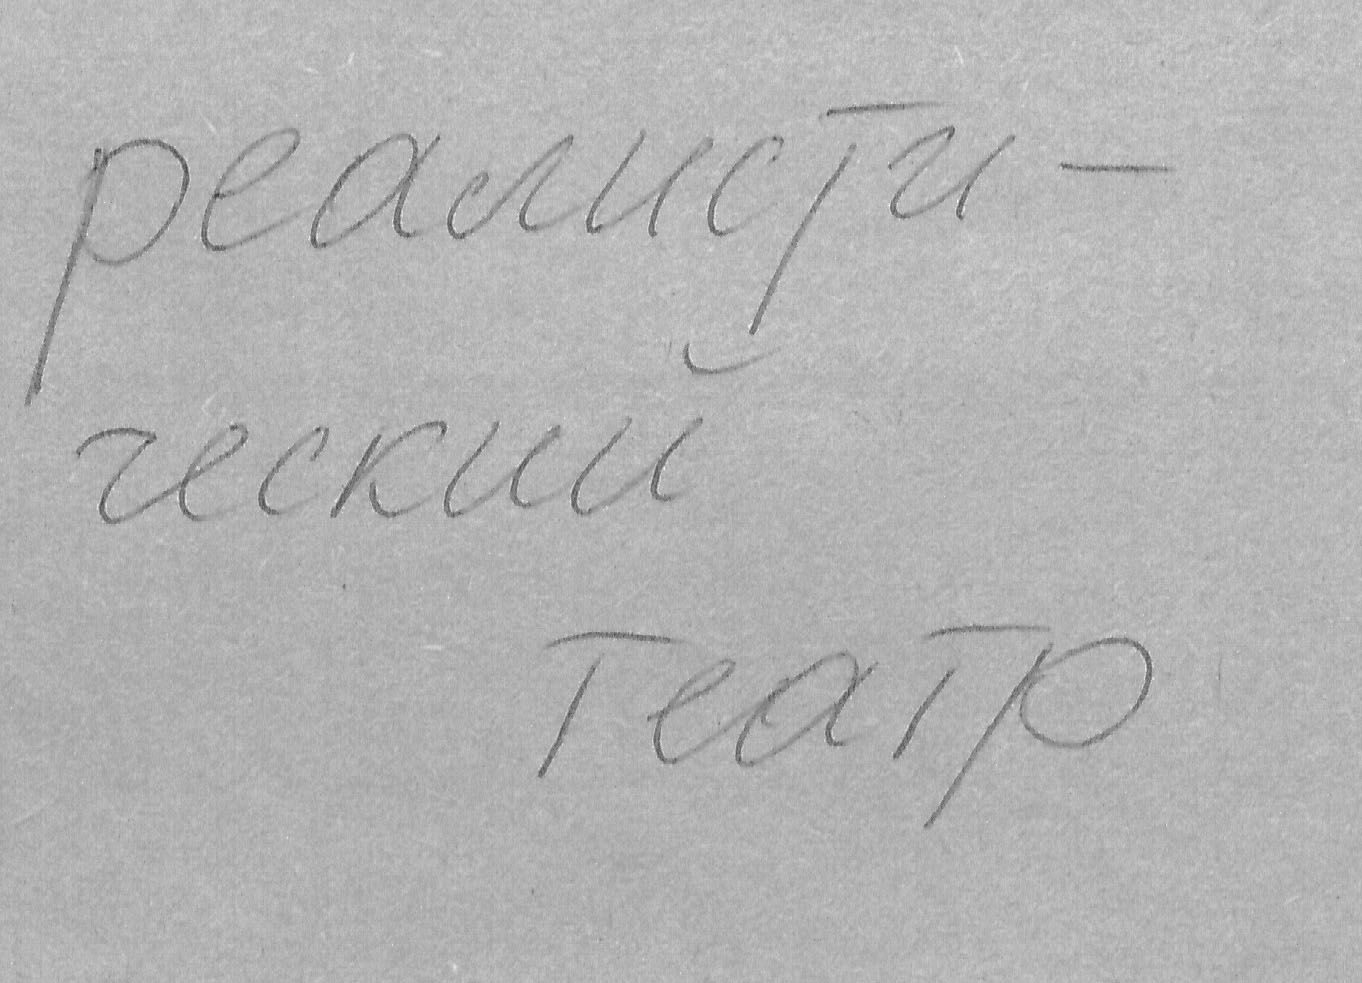 реалисти-
ческий
театр